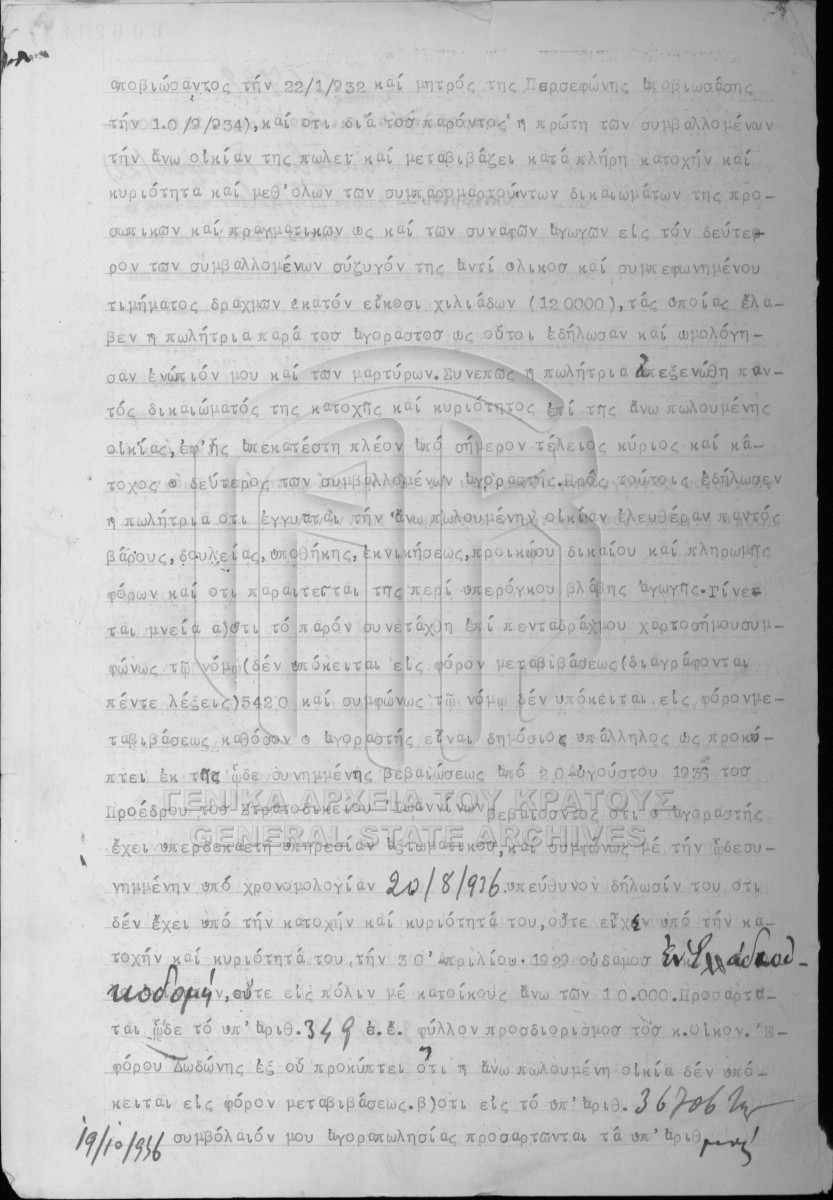 αποβιώσαντος τήν 22/1/932 καί μητρός της Περσεφώνης ἀποβιωσάσης
τήν 10/9/934),καί οτι διά τοσ παρόντος η πρώτη τών συμβαλλομένων
τήν ἄνω οἰκίαν της πωλεῖ καί μεταβιβάζει κατά πλήρη κατοχήν καί
κυριότητα καί μεθ'ολων τών συμπαρομαρτούντων δικαιωμάτων της προ-
σωπικων καί πραγματικων ως καί των συναφων ἀγωγων εἰς τόν δεύτε-
ρον των συμβαλλομένων σύζυγόν της ἀντί ολικοσ καί συμπεφωνημένου
τιμήματος δραχμων εκατόν εἴκοσι χιλιάδων (120000),τάς οποίας ἔλα-
βεν η πωλήτρια παρά τοσ ἀγοραστοσ ως οὗτοι εδήλωσαν καί ωμολόγη-
σαν ἐνώπιόν μου καί των μαρτύρων.Συνεπως η πωλήτρια ἀπεξενώθη παν-
τός δικαιώματός της κατοχης καί κυριότητος ἐπί της ἄνω πωλουμένης
οἰκίας,εφ'ης ἀπεκατέστη πλέον ἀπό σήμερον τέλειος κύριος καί κά-
τοχος ο δεύτερος των συμβαλλομένων ἀγοραστής.Πρός τούτοις ἐδήλωσεν
η πωλήτρια οτι ἐγγυαται τήν ἄνω πωλουμένην οἰκίαν ἐλευθέραν παντός
βάρους,δουλείας,υποθήκης,ἐκνικήσεως,προικώου δικαίου καί πληρωμης
φόρων καί οτι παραιτειται της περί υπερόγκου βλάβης ἀγωγης.Γίνε-
ται μνεία α)οτι τό παρόν συνετάχθη ἐπί πενταδράχμου χαρτοσήμουσυμ-
φώνως τῷ νόμῳ(δέν υπόκειται εἰς φόρον μεταβιβάσεως(διαγράφονται
πέντε λέξεις)5420 καί συμφώνως τῷ νόμῳ δέν υπόκειται εἰς φόρονμε-
ταβιβάσεως καθόσον ο ἀγοραστής εἶναι δημόσιος υπάλληλος ως προκύ-
πτει ἐκ της ᾧδε συνημμένης βεβαιώσεως ἀπό 20 Αυγούστου 1936 τοσ
Προέδρου τοσ Στρατοδικείου Ἰωαννίνων βεβαιοσντος οτι ο ἀγοραστής
ἔχει υπερδεκαετη υπηρεσίαν ἀξιωματικοσ,καί συμφώνως μέ τήν ᾧδεσυ-
νημμένην ἀπό χρονομολογίαν 20/8/936.υπεύθυνον δήλωσίν του οτι
δέν ἔχει υπό τήν κατοχήν καί κυριότητά του,οὔτε εἶχεν υπό τήν κα-
τοχήν καί κυριότητά του,τήν 30 Απριλίου 1929 ουδαμοσ ἐν Ελλάδι
οικοδομήν,οὔτε εἰς πόλιν μέ κατοίκους ἄνω των 10.000.Προσαρτα-
ται ᾧδε τό υπ'ἀριθ.349 ἐ.ἔ. φύλλον προσδιορισμοσ τοσ κ.Οἰκον. Ἐ-
φόρου Δωδώνης ἐξ οὗ προκύπτει ὅτι η ἄνω πωλουμένη οἰκία δέν υπό-
κειται εἰς φόρον μεταβιβάσεως.β)οτι εἰς τό υπ'ἀριθ. 36706
19/10/936 συμβόλαιόν μου ἀγοραπωλησίας προσαρτωνται τά υπ'ἀριθ
ΓΕΝΙΚΑ ΑΡΧΕΙΑ ΤΟΥ ΚΡΑΤΟΥΣ
GENERAL STATE ARCHIVES